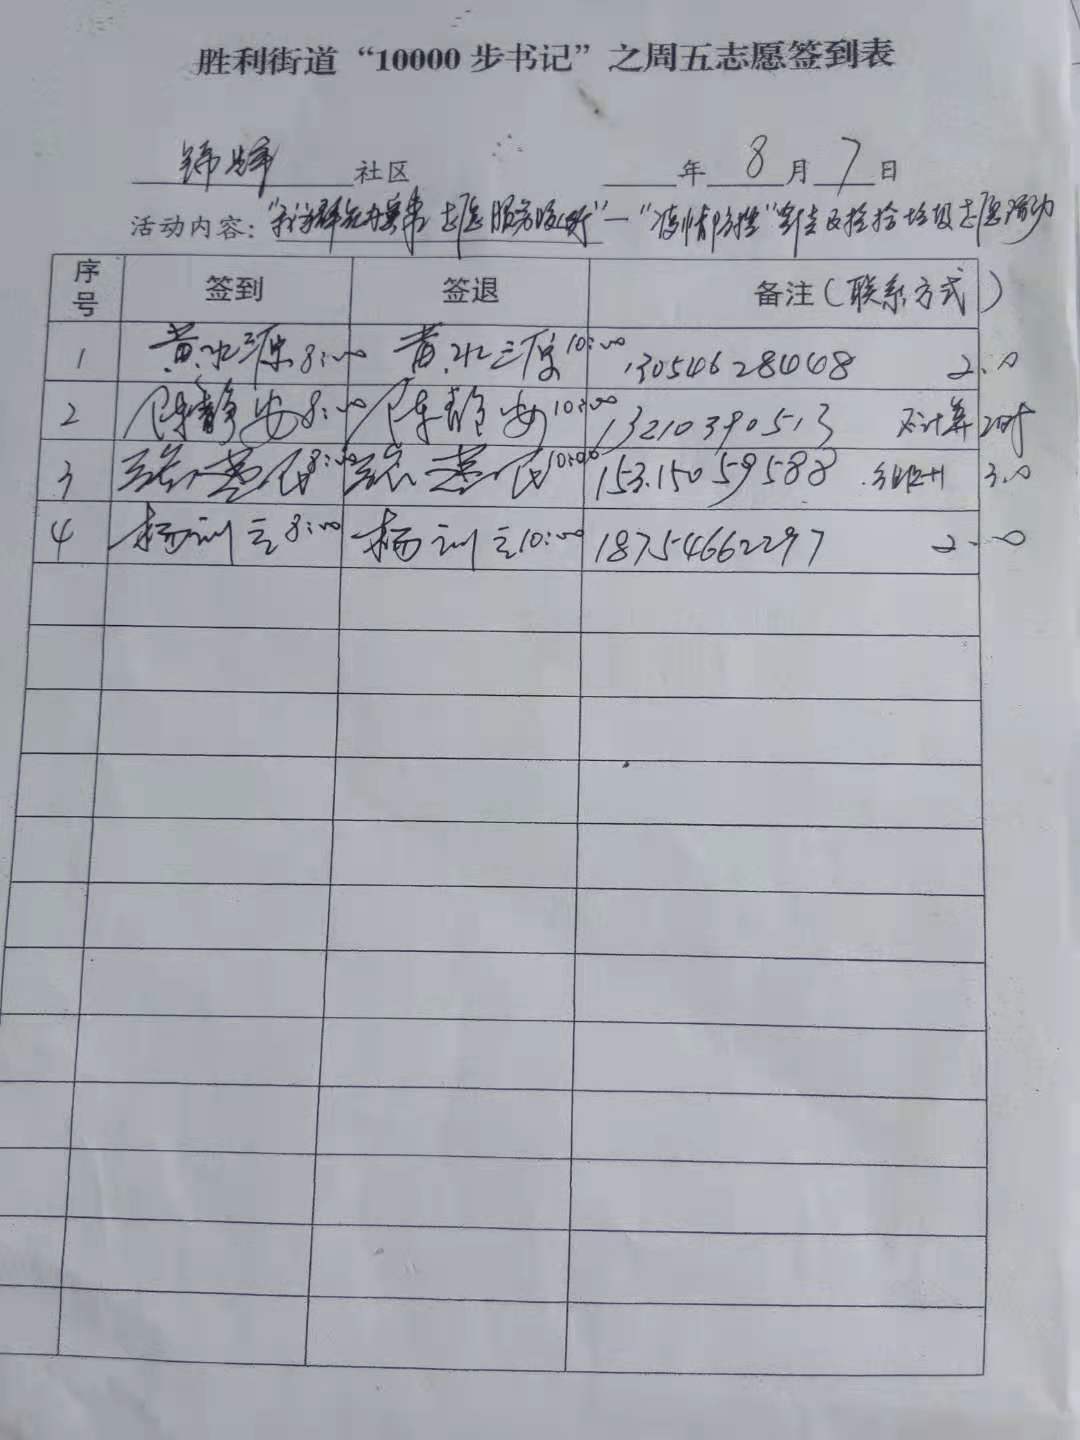 胜利街道“10000步书记”之周五志愿签到表
锦辉 社区 年 8 月 7 日
活动内容: “我为群众办实事 志愿服务”—“疫情防控”宣传及捡拾垃圾志愿活动
序号 签到 签退 备注(联系方式)
1 黄水源 8:00 黄水源 10:00 13054628448 2.0
2 陈静安 8:00 陈静安 10:00 13210390513 不计算 2时
3 8:00 10:00 15315059588 3.0
4 杨训云 8:00 杨训云 10:00 18754662297 2.0